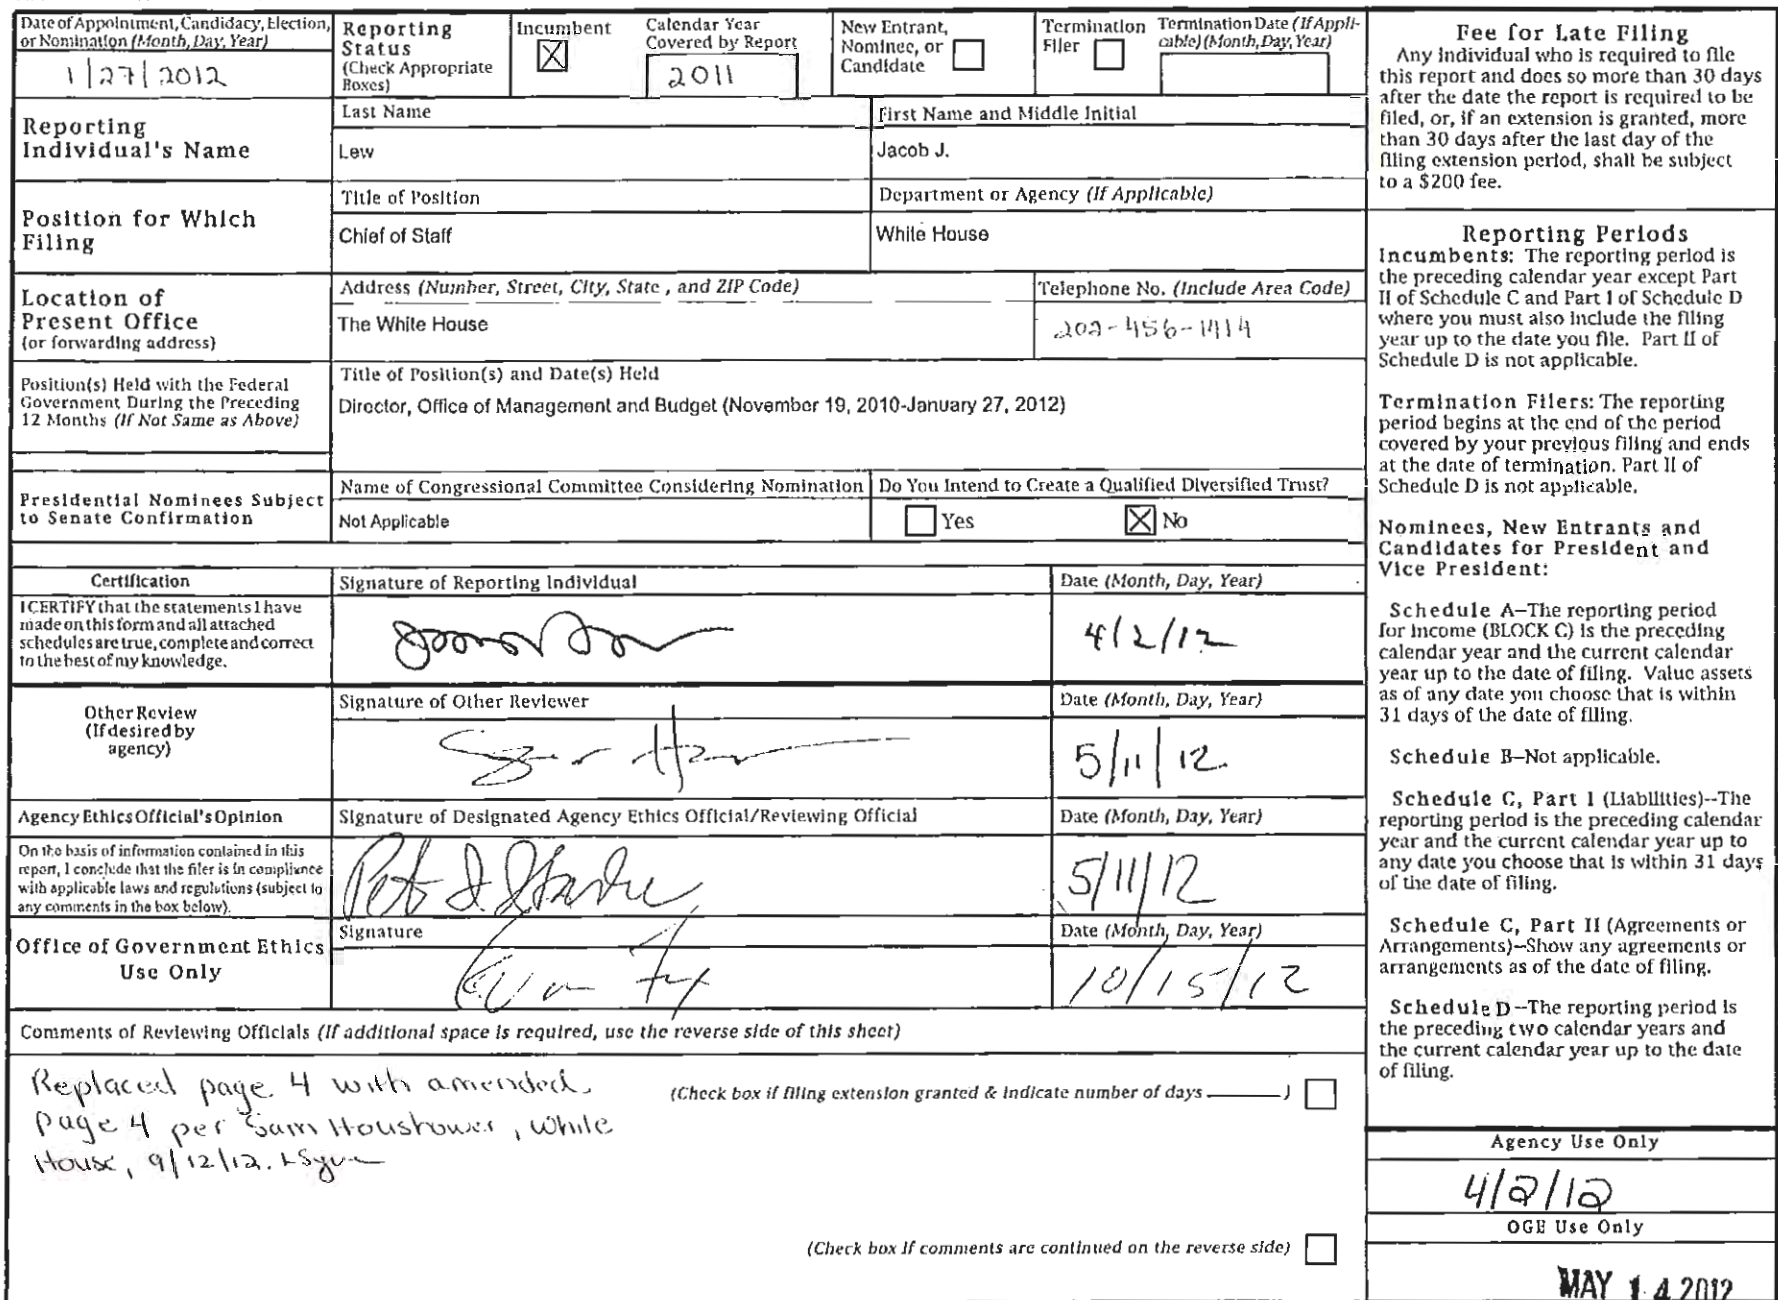 Date of Appointment, Candidacy, Election, or Nomination (Month, Day, Year)
1/27/2012
Reporting Status
(Check Appropriate Boxes)
Incumbent
Calendar Year Covered by Report
2011
New Entrant, Nominee, or Candidate
Termination Filer
Termination Date (If Applicable) (Month, Day, Year)
Reporting Individual's Name
Last Name
Lew
First Name and Middle Initial
Jacob J.
Position for Which Filing
Title of Position
Chief of Staff
Department or Agency (If Applicable)
White House
Location of Present Office
(or forwarding address)
Address (Number, Street, City, State , and ZIP Code)
The White House
Telephone No. (Include Area Code)
202-456-1414
Position(s) Held with the Federal
Government During the Preceding
12 Months (If Not Same as Above)
Title of Position(s) and Date(s) Held
Director, Office of Management and Budget (November 19, 2010-January 27, 2012)
Presidential Nominees Subject
to Senate Confirmation
Name of Congressional Committee Considering Nomination
Not Applicable
Do You Intend to Create a Qualified Diversified Trust?
Yes
No
Certification
I CERTIFY that the statements I have
made on this form and all attached
schedules are true, complete and correct
to the best of my knowledge.
Signature of Reporting Individual
Date (Month, Day, Year)
4/2/12
Other Review
(If desired by
agency)
Signature of Other Reviewer
Date (Month, Day, Year)
5/11/12
Agency Ethics Official's Opinion
On the basis of information contained in this
report, I conclude that the filer is in compliance
with applicable laws and regulations (subject to
any comments in the box below).
Signature of Designated Agency Ethics Official/Reviewing Official
Date (Month, Day, Year)
5/11/12
Office of Government Ethics
Use Only
Signature
Date (Month, Day, Year)
10/15/12
Comments of Reviewing Officials (If additional space is required, use the reverse side of this sheet)
Replaced page 4 with amended
page 4 per Sam White
House, 9/12/12.
(Check box if filing extension granted & indicate number of days ______ )
(Check box if comments are continued on the reverse side)
Fee for Late Filing
Any individual who is required to file
this report and does so more than 30 days
after the date the report is required to be
filed, or, if an extension is granted, more
than 30 days after the last day of the
filing extension period, shall be subject
to a $200 fee.
Reporting Periods
Incumbents: The reporting period is
the preceding calendar year except Part
II of Schedule C and Part I of Schedule D
where you must also include the filing
year up to the date you file. Part II of
Schedule D is not applicable.
Termination Filers: The reporting
period begins at the end of the period
covered by your previous filing and ends
at the date of termination. Part II of
Schedule D is not applicable.
Nominees, New Entrants and
Candidates for President and
Vice President:
Schedule A--The reporting period
for income (BLOCK C) is the preceding
calendar year and the current calendar
year up to the date of filing. Value assets
as of any date you choose that is within
31 days of the date of filing.
Schedule B--Not applicable.
Schedule C, Part I (Liabilities)--The
reporting period is the preceding calendar
year and the current calendar year up to
any date you choose that is within 31 days
of the date of filing.
Schedule C, Part II (Agreements or
Arrangements)--Show any agreements or
arrangements as of the date of filing.
Schedule D--The reporting period is
the preceding two calendar years and
the current calendar year up to the date
of filing.
Agency Use Only
4/2/12
OGE Use Only
MAY 14 2012